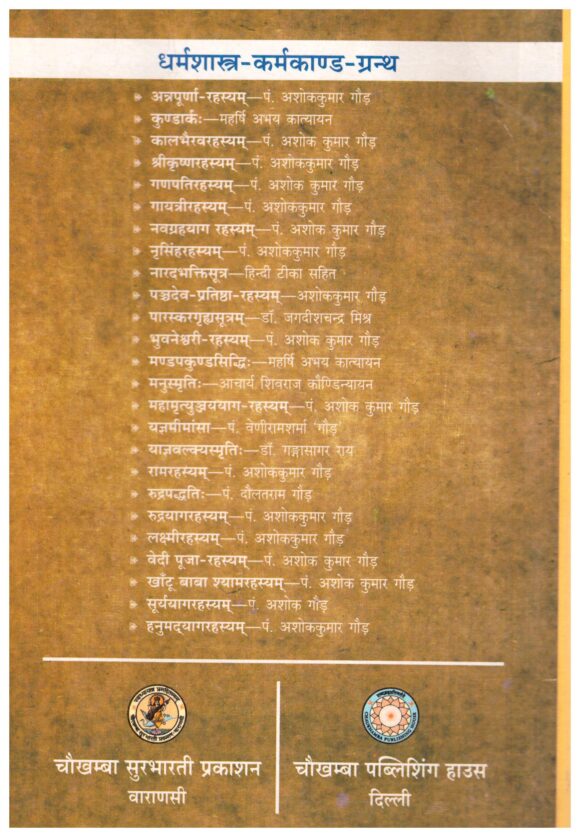 धर्मशास्त्र-कर्मकाण्ड-ग्रन्थ
अन्नपूर्णा-रहस्यम्—पं. अशोककुमार गौड़
कुण्डार्कः—महर्षि अभय कात्यायन
कालभैरवरहस्यम्—पं. अशोक कुमार गौड़
श्रीकृष्णरहस्यम्—पं. अशोककुमार गौड़
गणपतिरहस्यम्—पं. अशोक कुमार गौड़
गायत्रीरहस्यम्—पं. अशोककुमार गौड़
नवग्रहयाग रहस्यम्—पं. अशोक कुमार गौड़
नृसिंहरहस्यम्—पं. अशोककुमार गौड़
नारदभक्तिसूत्र—हिन्दी टीका सहित
पञ्चदेव-प्रतिष्ठा-रहस्यम्—अशोककुमार गौड़
पारस्करगृह्यसूत्रम्—डॉ. जगदीशचन्द्र मिश्र
भुवनेश्वरी-रहस्यम्—पं. अशोक कुमार गौड़
मण्डपकुण्डसिद्धिः—महर्षि अभय कात्यायन
मनुस्मृतिः—आचार्य शिवराज कौण्डिन्यायन
महामृत्युञ्जययाग-रहस्यम्—पं. अशोक कुमार गौड़
यज्ञमीमांसा—पं. वेणीरामशर्मा 'गौड़'
याज्ञवल्क्यस्मृतिः—डॉ. गङ्गासागर राय
रामरहस्यम्—पं. अशोककुमार गौड़
रुद्रपद्धतिः—पं. दौलतराम गौड़
रुद्रयागरहस्यम्—पं. अशोककुमार गौड़
लक्ष्मीरहस्यम्—पं. अशोककुमार गौड़
वेदी पूजा-रहस्यम्—पं. अशोक कुमार गौड़
खाँटू बाबा श्यामरहस्यम्—पं. अशोक कुमार गौड़
सूर्ययागरहस्यम्—पं. अशोक गौड़
हनुमद्यागरहस्यम्—पं. अशोककुमार गौड़
चौखम्बा सुरभारती प्रकाशन
वाराणसी
चौखम्बा पब्लिशिंग हाउस
दिल्ली